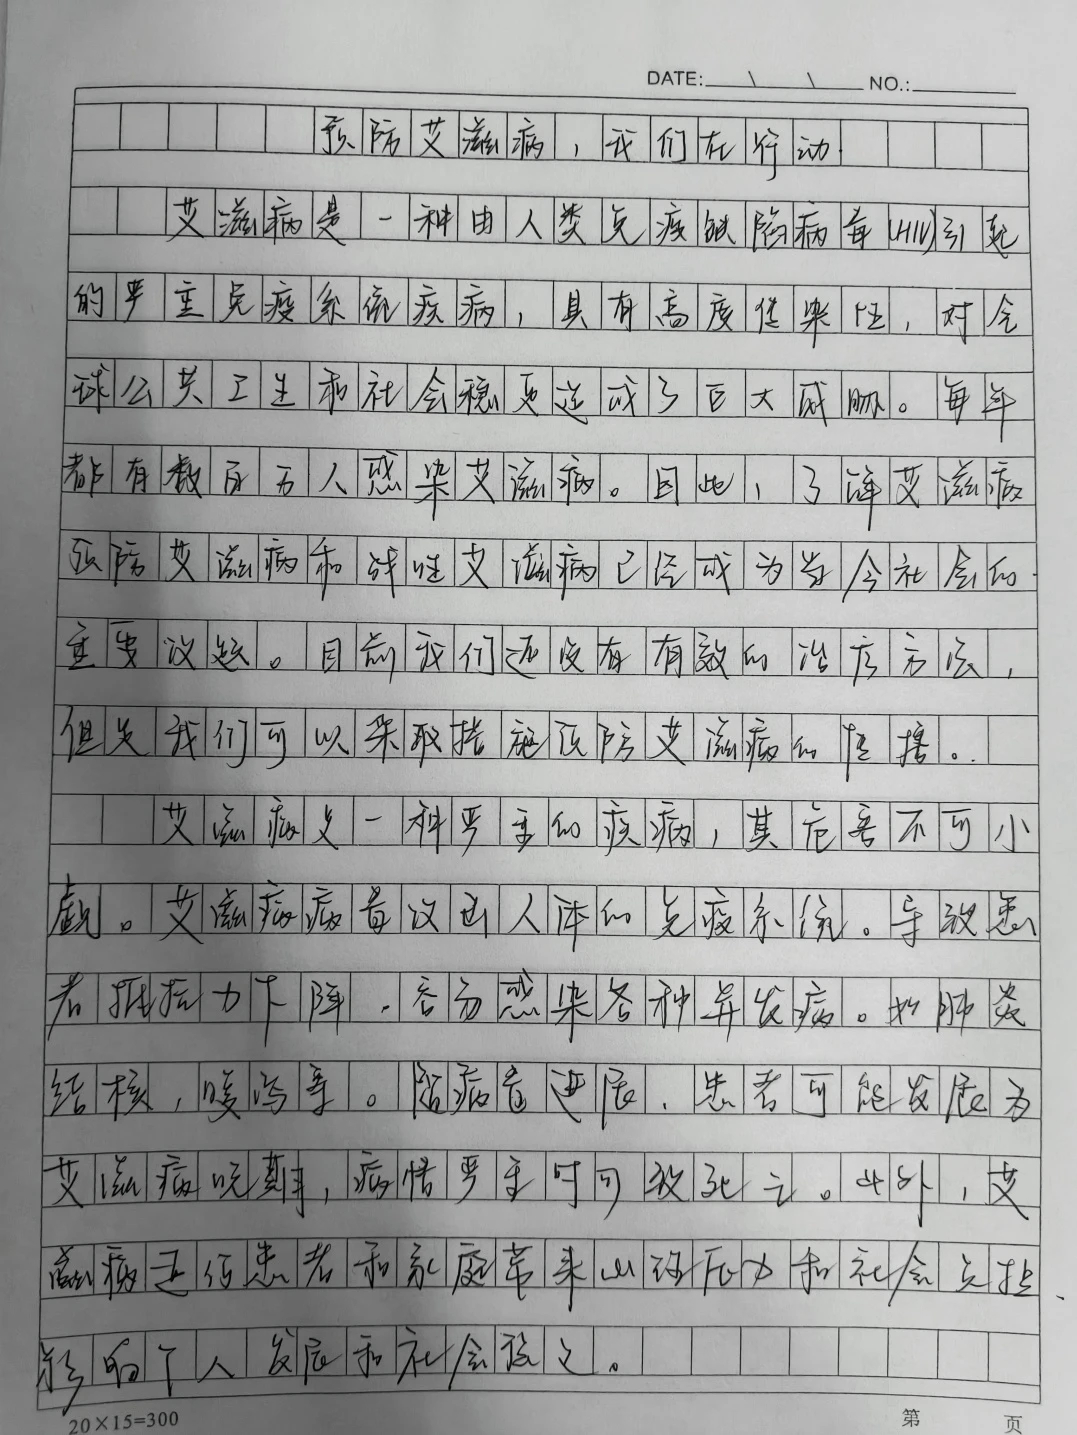 DATE: \ \ NO.:
预防艾滋病，我们在行动
艾滋病是一种由人类免疫缺陷病毒(HIV)引起
的严重免疫系统疾病，具有高度传染性，对全
球公共卫生和社会稳定造成了巨大威胁。每年
都有数百万人感染艾滋病。因此，了解艾滋病
预防艾滋病和战胜艾滋病已经成为当今社会的
重要议题。目前我们还没有有效的治疗方法，
但是我们可以采取措施预防艾滋病的传播。
艾滋病是一种严重的疾病，其危害不可小
觑。艾滋病病毒攻击人体的免疫系统。导致患
者抵抗力下降，容易感染各种并发病。如肺炎
结核，腹泻等。随病毒进展，患者可能发展为
艾滋病晚期，病情严重时可致死亡。此外，艾
滋病还给患者和家庭带来心理压力和社会
的个人发展和社会稳定。
20×15=300
第 页